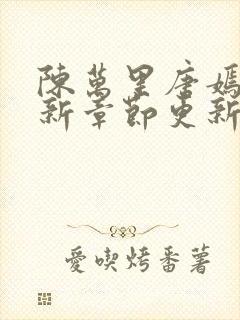 陳萬里唐嫣
新章節更新
愛喫烤番薯